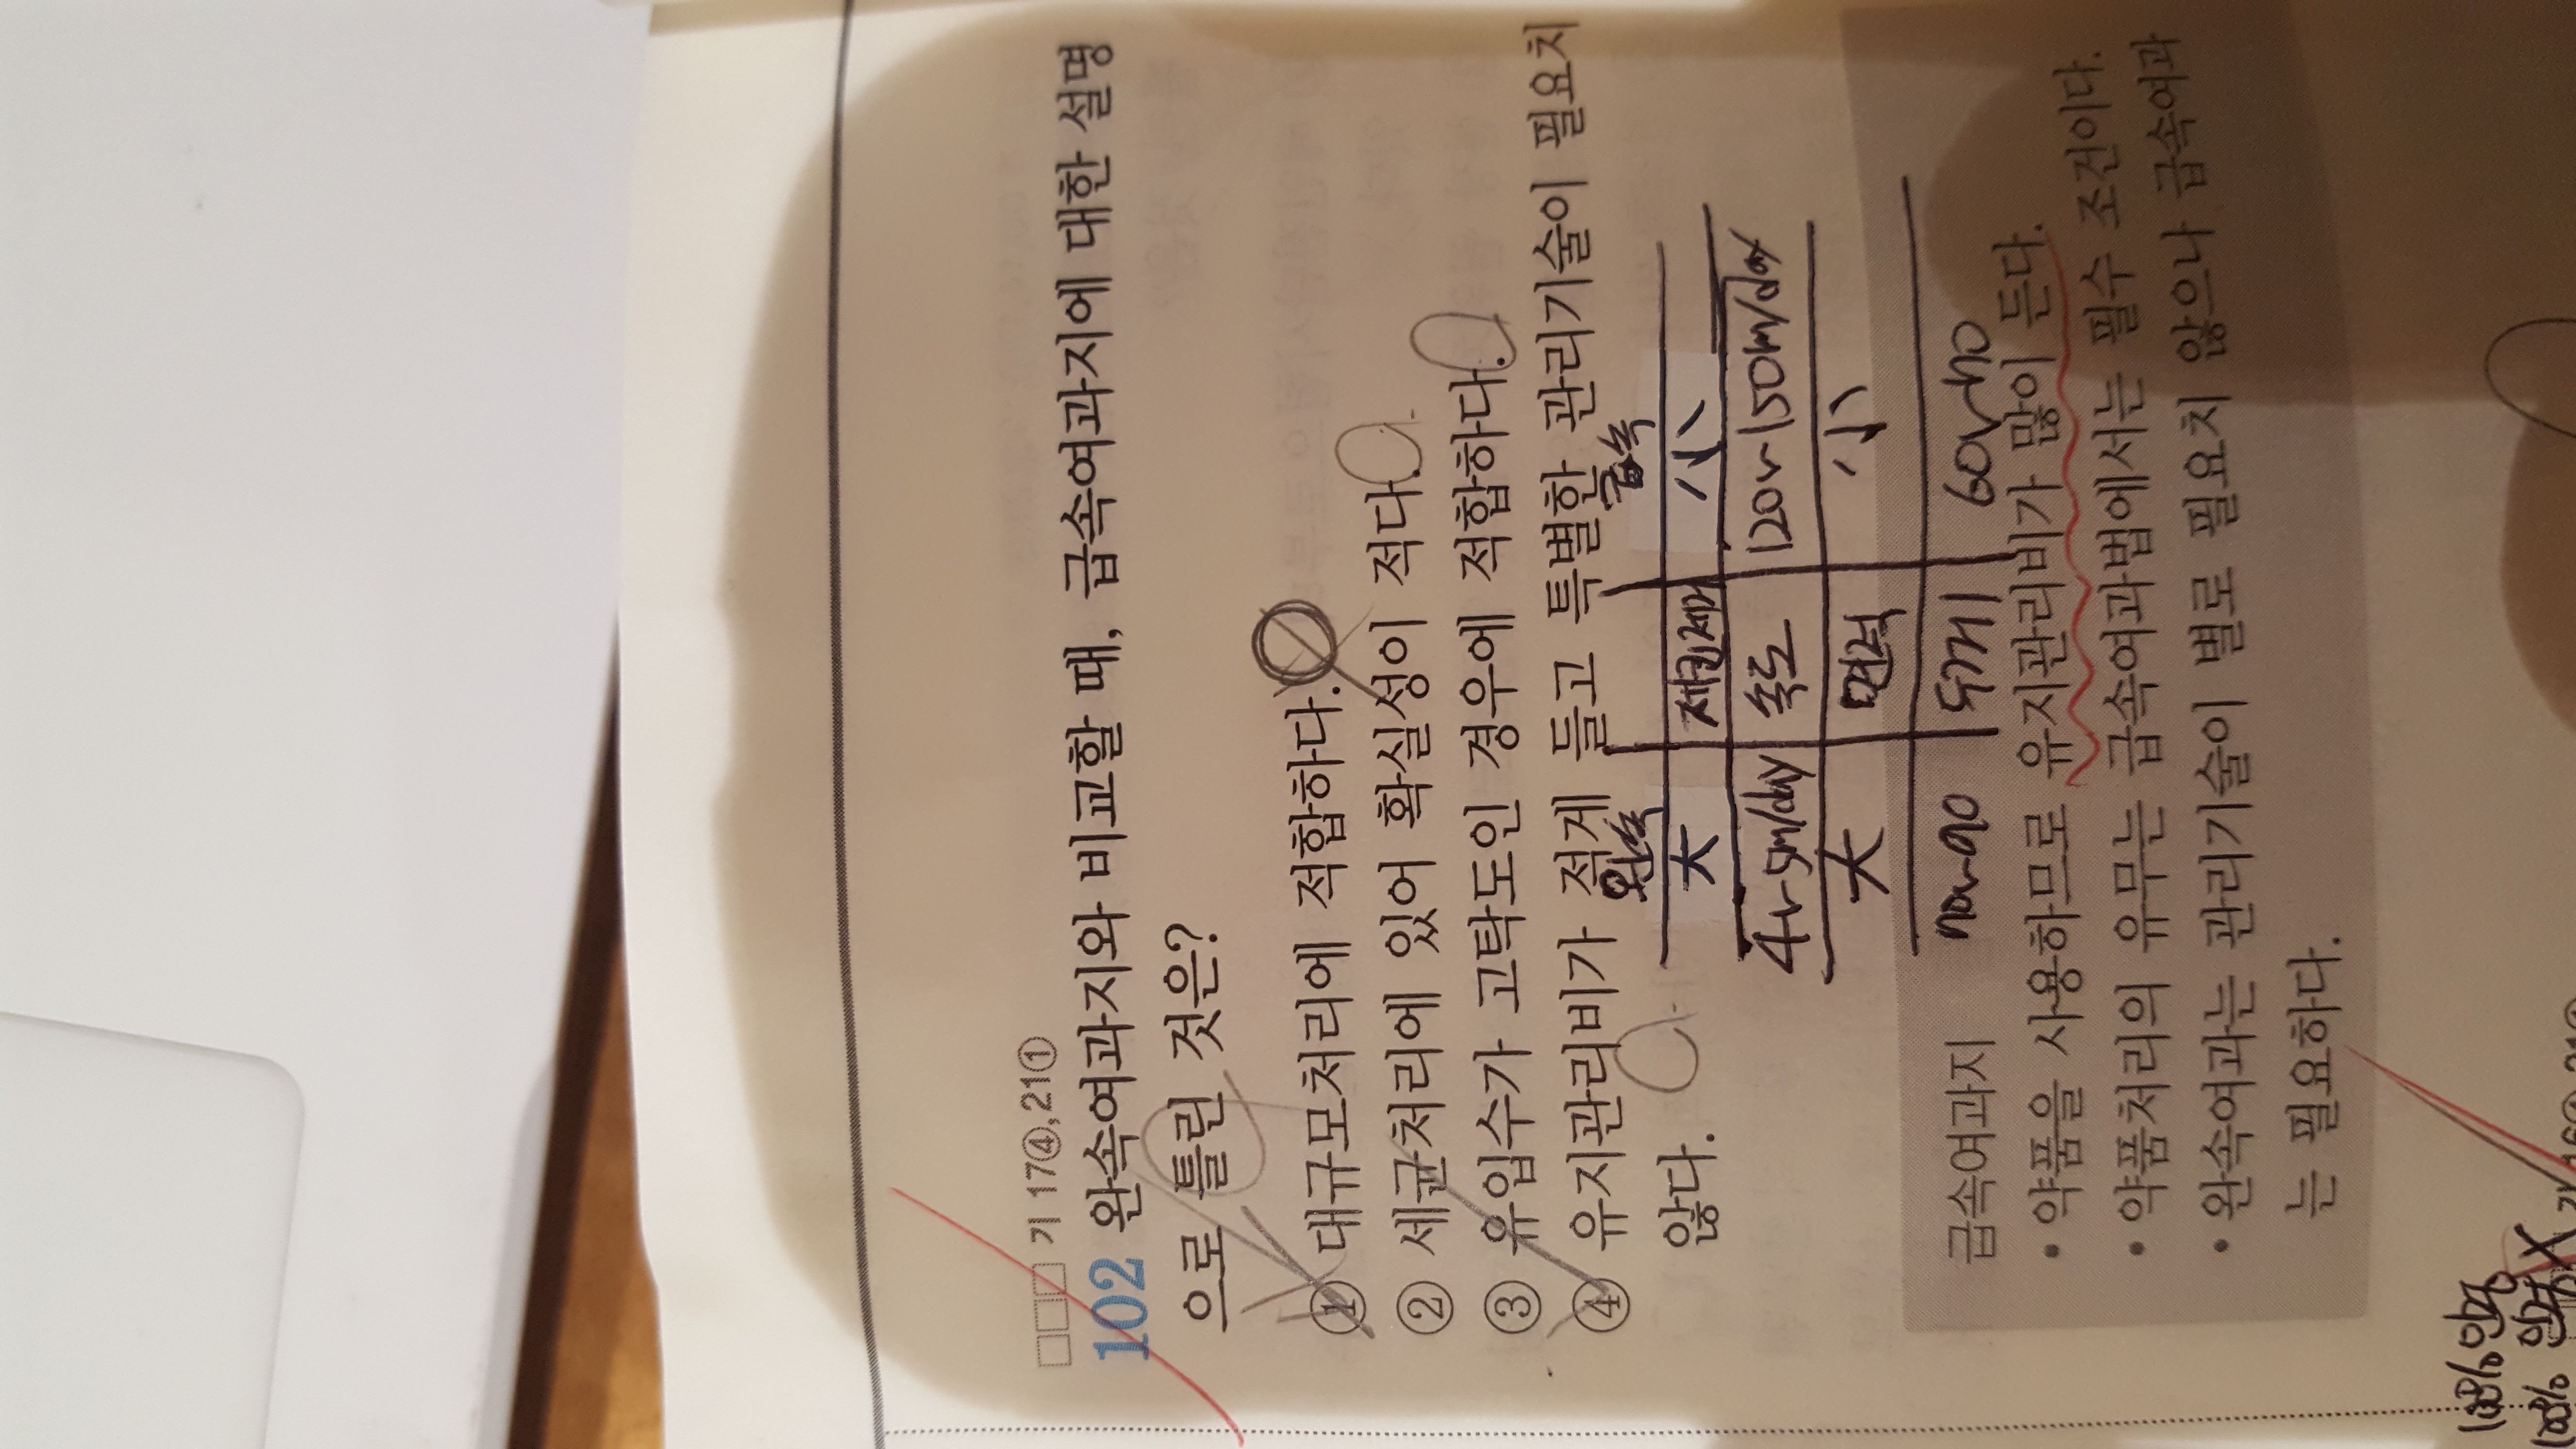 기 17④,21①
102 완속여과지와 비교할 때, 급속여과지에 대한 설명
으로 틀린 것은?
① 대규모처리에 적합하다.
② 세균처리에 있어 확실성이 적다.
③ 유입수가 고탁도인 경우에 적합하다.
④ 유지관리비가 적게 들고 특별한 관리기술이 필요치
않다.
완속 급속
大 세균제거 小
4~5m/day 속도 120~150m/day
大 면적 小
70~90 두께 60~70
급속여과지
• 약품을 사용하므로 유지관리비가 많이 든다.
• 약품처리의 유무는 급속여과법에서는 필수 조건이다.
• 완속여과는 관리기술이 별로 필요치 않으나 급속여과
는 필요하다.